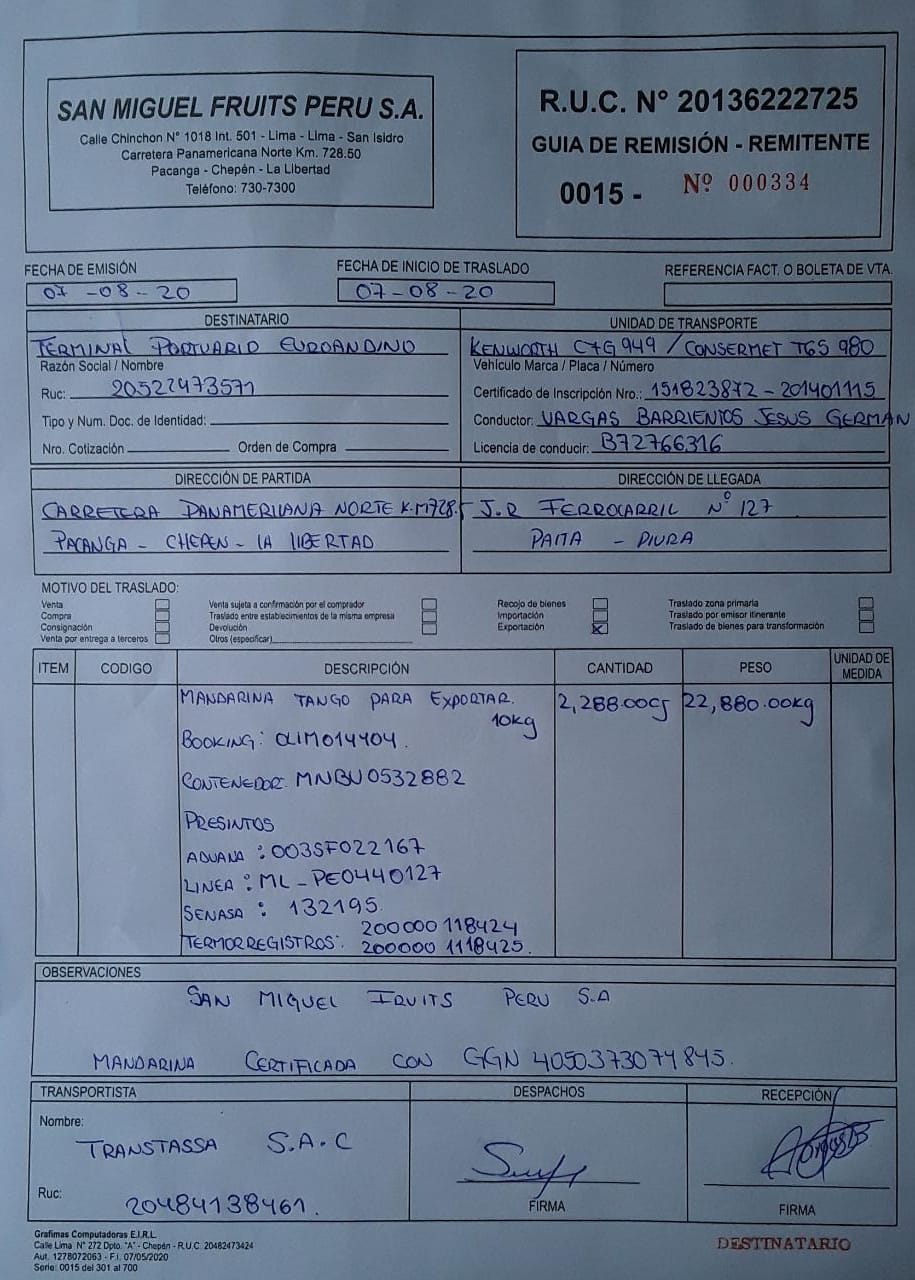 SAN MIGUEL FRUITS PERU S.A.
Calle Chinchon N° 1018 Int. 501 - Lima - Lima - San Isidro
Carretera Panamericana Norte Km. 728.50
Pacanga - Chepén - La Libertad
Teléfono: 730-7300
R.U.C. N° 20136222725
GUIA DE REMISIÓN - REMITENTE
0015 - Nº 000334
FECHA DE EMISIÓN
07-08-20
FECHA DE INICIO DE TRASLADO
07-08-20
REFERENCIA FACT. O BOLETA DE VTA.
DESTINATARIO
TERMINAL PORTUARIO EUROANDINO
Razón Social / Nombre
Ruc: 20522473571
Tipo y Num. Doc. de Identidad:
Nro. Cotización Orden de Compra
UNIDAD DE TRANSPORTE
KENWORTH C7G 949 / CONSERMET T6S 980
Vehículo Marca / Placa / Número
Certificado de Inscripción Nro.: 151823872 - 201401115
Conductor: VARGAS BARRIENTOS JESUS GERMAN
Licencia de conducir: B72766316
DIRECCIÓN DE PARTIDA
CARRETERA PANAMERICANA NORTE K.M728.5
PACANGA - CHEPEN - LA LIBERTAD
DIRECCIÓN DE LLEGADA
J.R FERROCARRIL N° 127
PAITA - PIURA
MOTIVO DEL TRASLADO:
Venta
Compra
Consignación
Venta por entrega a terceros
Venta sujeta a confirmación por el comprador
Traslado entre establecimientos de la misma empresa
Devolución
Otros (especificar)
Recojo de bienes
Importación
Exportación X
Traslado zona primaria
Traslado por emisor itinerante
Traslado de bienes para transformación
ITEM CODIGO DESCRIPCIÓN CANTIDAD PESO UNIDAD DE MEDIDA
MANDARINA TANGO PARA EXPORTAR. 2,288.00CJ 22,880.00kg
10kg
BOOKING: OLIM014404.
CONTENEDOR: MNBU0532882
PRESINTOS
ADUANA : 003SF022167
LINEA : ML-PE0440127
SENASA : 132195.
200000 118424
TERMORREGISTROS: 200000 1118425.
OBSERVACIONES
SAN MIGUEL FRUITS PERU S.A
MANDARINA CERTIFICADA CON GGN 4050373074845.
TRANSPORTISTA
Nombre:
TRANSTASSA S.A.C
Ruc:
20484138461.
DESPACHOS
FIRMA
RECEPCIÓN
FIRMA
Grafimas Computadoras E.I.R.L.
Calle Lima N° 272 Dpto. "A" - Chepén - R.U.C. 20482473424
Aut. 1278072063 - F.I. 07/05/2020
Serie: 0015 del 301 al 700
DESTINATARIO